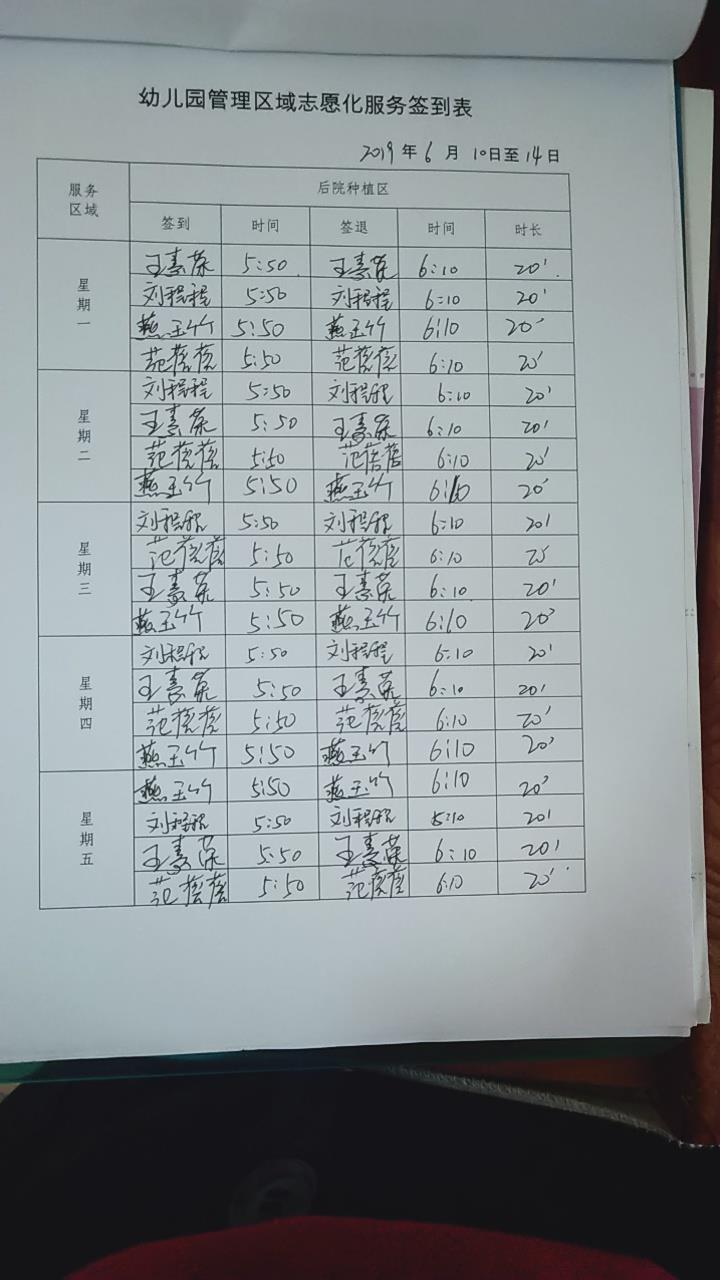 幼儿园管理区域志愿化服务签到表
2019年6月10日至14日
服务区域 后院种植区
签到 时间 签退 时间 时长
星期一
王素荣 5:50 王素荣 6:10 20'
刘程程 5:50 刘程程 6:10 20'
燕玉竹 5:50 燕玉竹 6:10 20'
范蓓蓓 5:50 范蓓蓓 6:10 20'
星期二
刘程程 5:50 刘程程 6:10 20'
王素荣 5:50 王素荣 6:10 20'
范蓓蓓 5:50 范蓓蓓 6:10 20'
燕玉竹 5:50 燕玉竹 6:10 20'
星期三
刘程程 5:50 刘程程 6:10 20'
范蓓蓓 5:50 范蓓蓓 6:10 20'
王素荣 5:50 王素荣 6:10 20'
燕玉竹 5:50 燕玉竹 6:10 20'
星期四
刘程程 5:50 刘程程 6:10 20'
王素荣 5:50 王素荣 6:10 20'
范蓓蓓 5:50 范蓓蓓 6:10 20'
燕玉竹 5:50 燕玉竹 6:10 20'
星期五
燕玉竹 5:50 燕玉竹 6:10 20'
刘程程 5:50 刘程程 6:10 20'
王素荣 5:50 王素荣 6:10 20'
范蓓蓓 5:50 范蓓蓓 6:10 20'